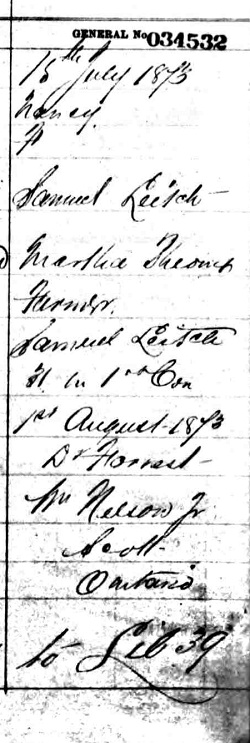 GENERAL No 034532
18th July 1873
Nancy
F
Samuel Leitch
Martha
Farmer
Samuel Leitch
in 1st Con
1st August 1873
Dr Forrest
Wm Nelson Jr
Scott
Ontario
to Lib 39